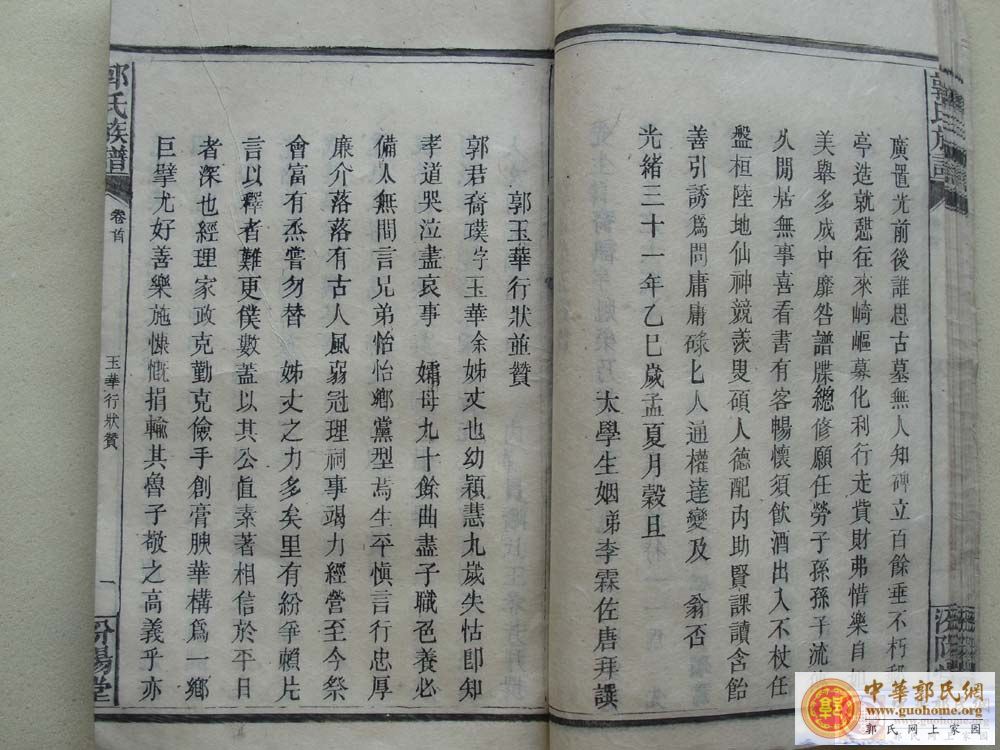 廣置光前後誰思古墓無人知碑立百餘垂不朽
亭造就憩往來崎嶇募化利行走貲財弗惜樂自
美舉多成中靡咎譜牒總修願任勞子孫孫子流
久閒居無事喜看書有客暢懷須飲酒出入不杖任
盤桓陸地仙神競羨叟碩人德配內助賢課讀含飴
善引誘爲問庸庸碌匕人通權達變及 翁否
光緒三十一年乙巳歲孟夏月穀旦
太學生姻弟李霖佐唐拜譔
郭玉華行狀並贊
郭君裔璞字玉華余姊丈也幼穎慧九歲失怙卽知
孝道哭泣盡哀事 孀母九十餘曲盡子職色養必
備人無間言兄弟怡怡鄉黨型焉生平愼言行忠厚
廉介落落有古人風弱冠理祠事竭力經營至今祭
會富有烝嘗勿替 姊丈之力多矣里有紛爭賴片
言以釋者難更僕數蓋以其公眞素著相信於平日
者深也經理家政克勤克儉手創膏腴華構爲一鄉
巨擘尤好善樂施慷慨捐輸其魯子敬之高義乎亦
郭氏族譜
卷首
玉華行狀贊
一
汾陽堂
中華郭氏網
www.guohome.org
郭氏网上家园